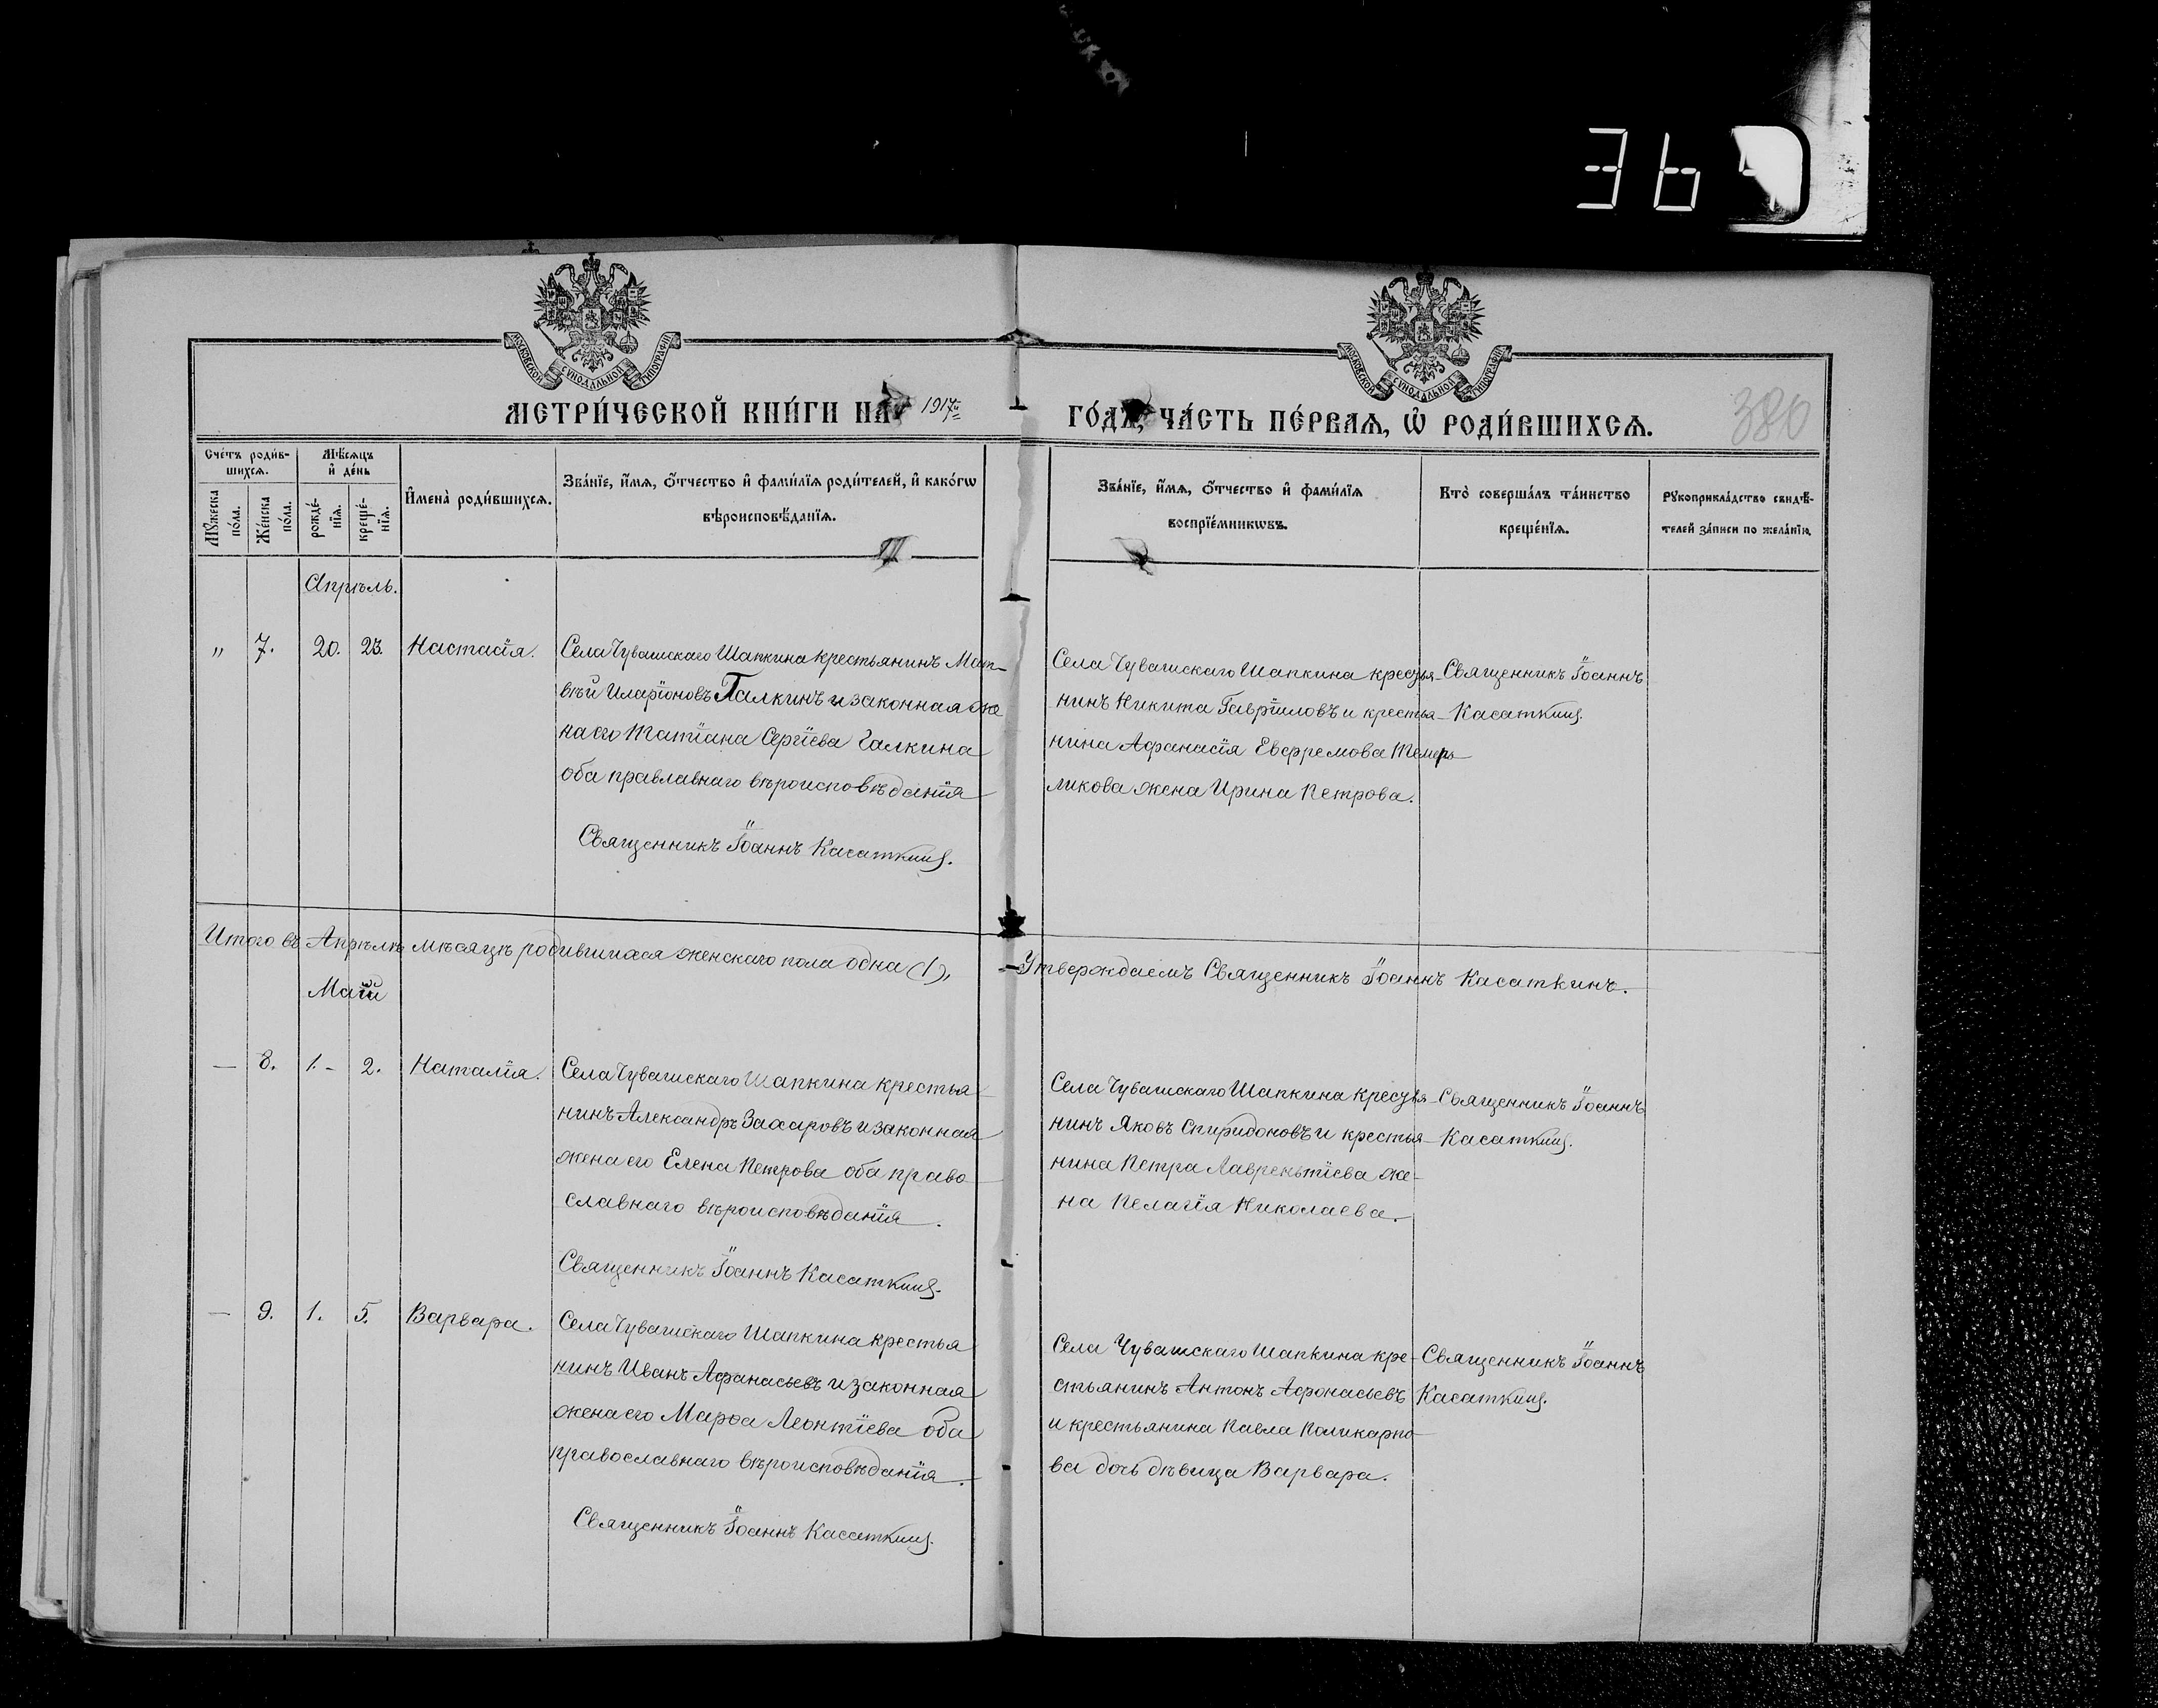 364
МОСКОВСКОЙ СУНОДАЛЬНОЙ ТИПОГРАФІИ
МОСКОВСКОЙ СУНОДАЛЬНОЙ ТИПОГРАФІИ
МЕТРИ́ЧЕСКОЙ КНИ́ГИ НА 1917й
ГО́ДЪ, ЧА́СТЬ ПЕ́РВАѦ, Ѡ҆ РОДИ́ВШИХСѦ.
380
Сче́тъ роди́в-
шихсѧ.
Мѣ́сѧцъ
и҆ де́нь
Мꙋ́жеска
по́ла.
Же́нска
по́ла.
рожде́-
нїѧ.
креще́-
нїѧ.
И҆мена̀ роди́вшихсѧ.
Зва́нїе, и҆́мѧ, ѻ҆́тчество и҆ фами́лїѧ роди́телей, и҆ како́гѡ
вѣроисповѣ́данїѧ.
Зва́нїе, и҆́мѧ, ѻ҆́тчество и҆ фами́лїѧ
воспрїе́мникѡвъ.
Кто̀ соверша́лъ та́инство
креще́нїѧ.
Рꙋкоприкла́дство свидѣ́-
телей за́писи по жела́нїю.
Апрѣль.
" 7. 20. 23. Настасія.
Села Чувашскаго Шапкина крестьянинъ Мат-
вѣй Иларіоновъ Галкинъ и законная же
на его Татіана Сергіева Галкина
оба правлавнаго вѣроисповѣданія
Священникъ Іоаннъ Касаткинъ.
Села Чувашскаго Шапкина крестья-
нинъ Никита Гавріиловъ и крестья-
нина Афанасія Евсфремова
ликова жена Ирина Петрова.
Священникъ Іоаннъ
Касаткинъ.
Итого въ Апрѣлѣ мѣсяцѣ родившихся женскаго пола одна (1),
Утверждаемъ Священникъ Іоаннъ Касаткинъ.
Май
— 8. 1.- 2. Наталія.
Села Чувашскаго Шапкина крестья
нинъ Александръ Захаровъ и законная
жена его Елена Петрова оба право
славнаго вѣроисповѣданія.
Священникъ Іоаннъ Касаткинъ.
Села Чувашскаго Шапкина крестья-
нинъ Яковъ Спиридоновъ и крестья-
нина Петра Лаврентіева же-
на Пелагія Николаева.
Священникъ Іоаннъ
Касаткинъ.
— 9. 1. 5. Варвара.
Села Чувашскаго Шапкина крестья
нинъ Иванъ Афанасьевъ и законная
жена его Марфа Леонтіева оба
православнаго вѣроисповѣданія.
Священникъ Іоаннъ Касаткинъ.
Села Чувашскаго Шапкина кре-
стьянинъ Антонъ Афонасьевъ
и крестьянина Павла Поликарпо-
ва дочь дѣвица Варвара.
Священникъ Іоаннъ
Касаткинъ.